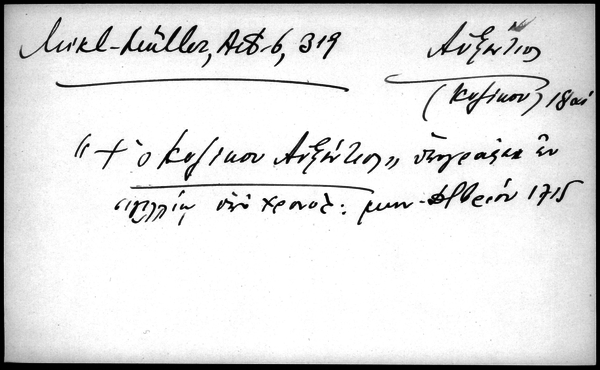 Mikl-Müller, Act. 6, 319
Αὐξέντιος
(Κυζίκου) 18 αἰ
"+ ὁ Κυζίκου Αὐξέντιος„ ὑπογράφει ἐν
σιγιλλίῳ ὑπὸ χρονολ: μην. 1715